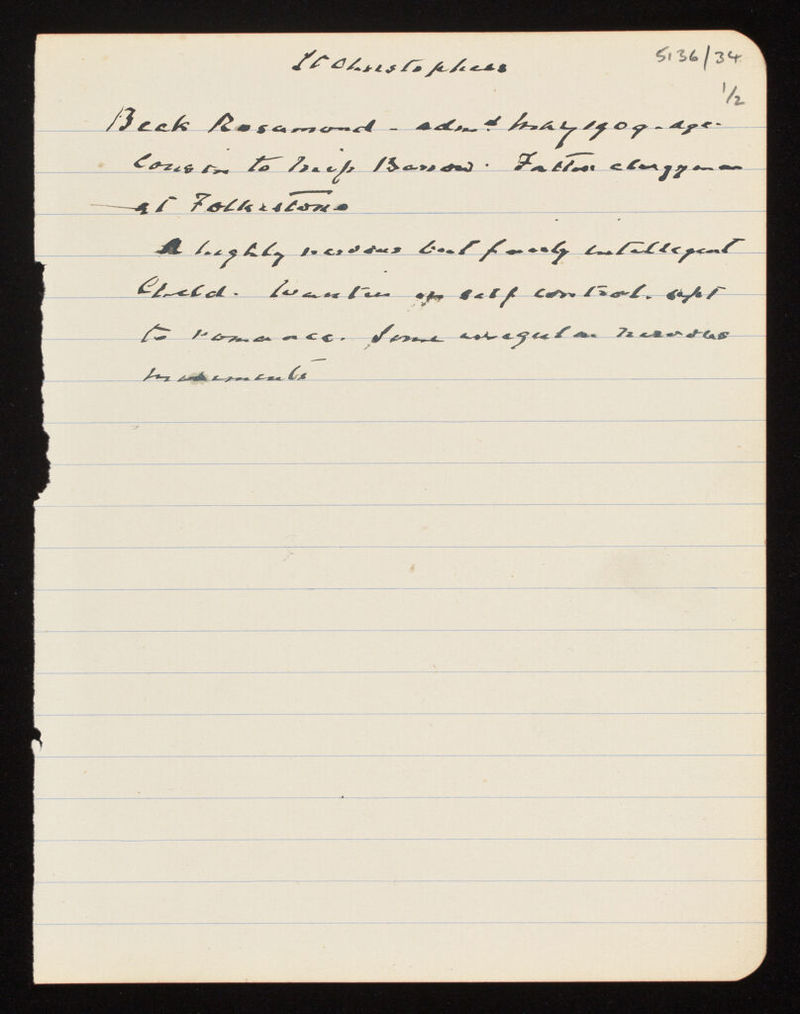 St Christophers
5136/34
1/2
Beck Rosamond - admd May 1909 - age -
Cousin to Miss Barrow. Father clergyman
at Folkestone
A highly nervous but fairly intelligent
Child. Wanting in self control. apt
to romance. Some irregular nervous
movements